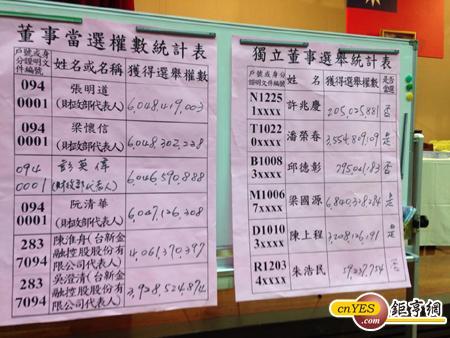 董事當選權數統計表
戶號或身分證明文件編號 姓名或名稱 獲得選舉權數
094 0001 張明道 (財政部代表人) 6,048,419,003
094 0001 梁懷信 (財政部代表人) 6,048,302,228
094 0001 彭英偉 (財政部代表人) 6,046,590,888
094 0001 阮清華 (財政部代表人) 6,047,126,308
283 7094 陳淮舟(台新金融控股股份有限公司代表人) 4,061,370,397
283 7094 吳澄清(台新金融控股股份有限公司代表人) 3,928,524,874
獨立董事選舉統計表
戶號或身分證明文件編號 姓名 獲得選舉權數 是否當選
N1225 1xxxx 許兆慶 205,025,881 否
T1022 0xxxx 潘榮春 3,554,809,109 是
B1008 3xxxx 邱德彰 795,041,183 否
M1006 7xxxx 梁國源 6,840,328,284 是
D1010 3xxxx 陳上程 3,208,126,191 是
R1203 4xxxx 朱浩民 59,237,754 否
cnYES.com 鉅亨網